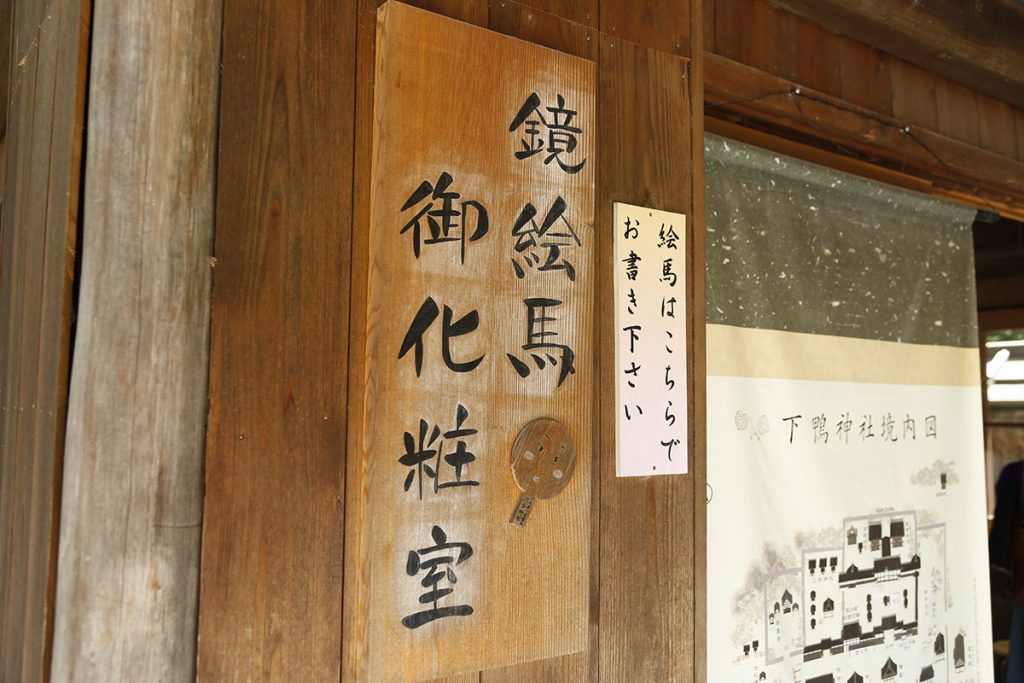 鏡絵馬
御化粧室
絵馬はこちらで
お書き下さい
下鴨神社境内図